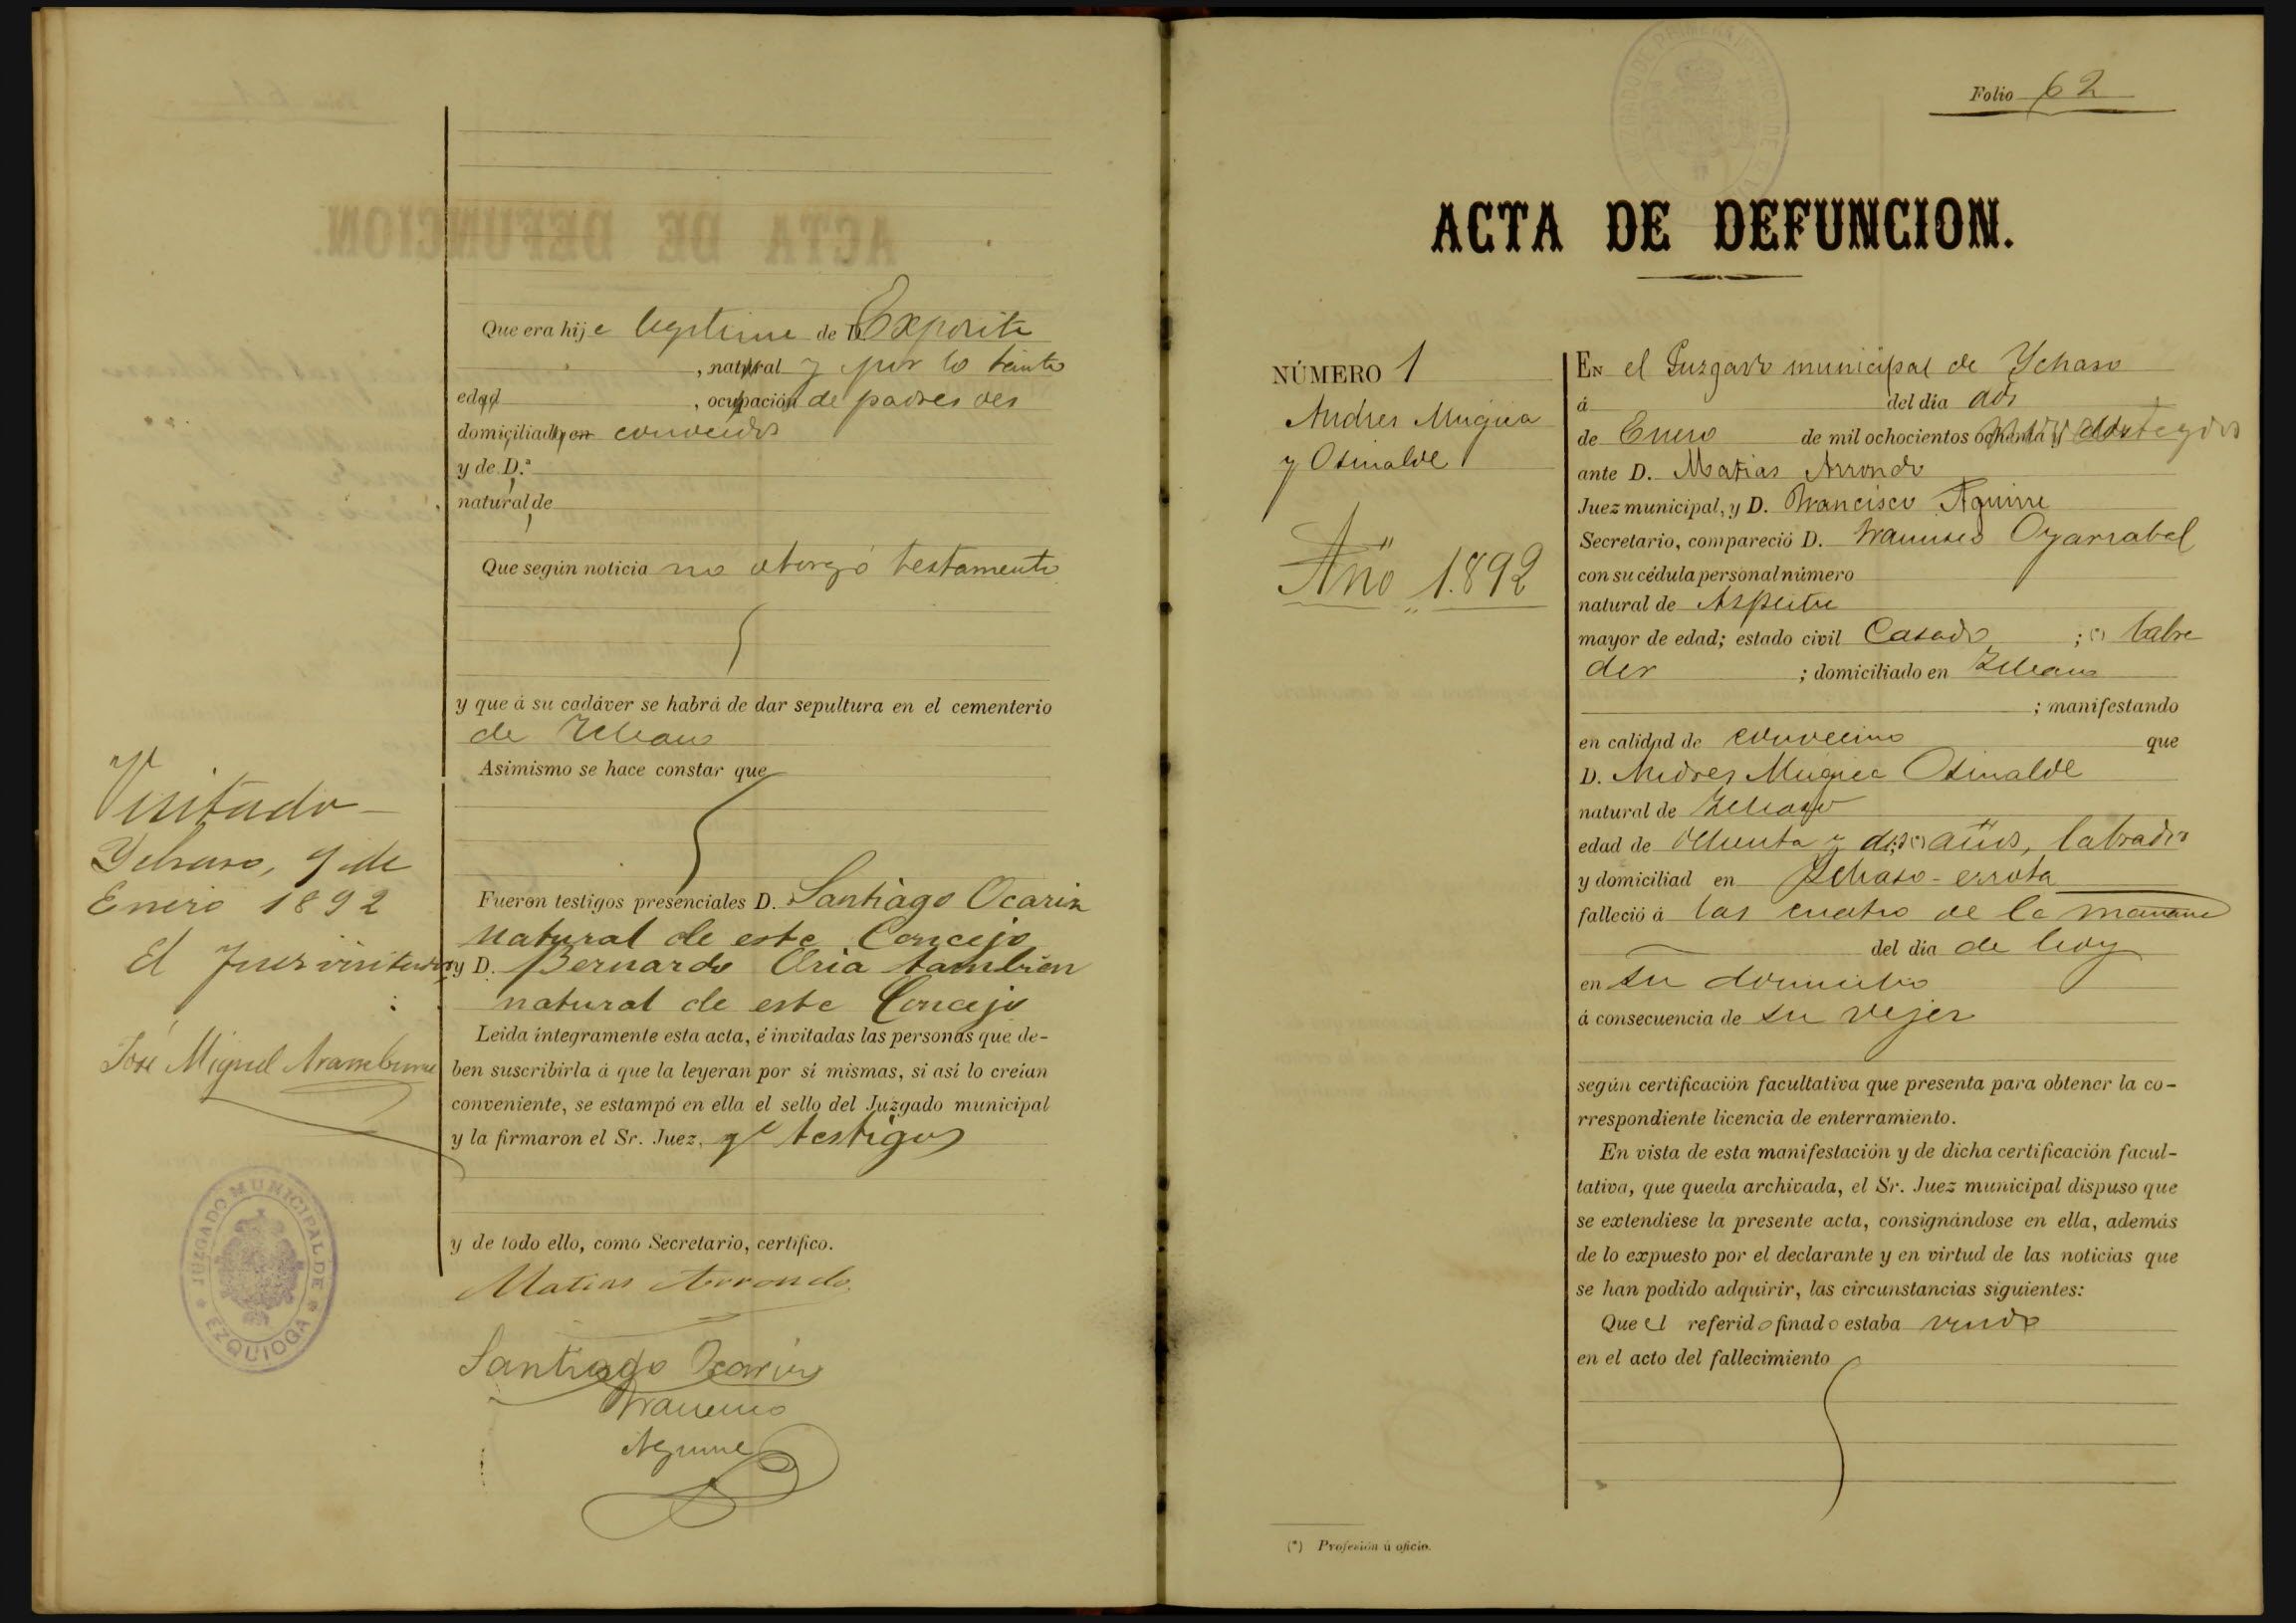 Que era hijo legitimo de D. Exposito
, natural y por lo tanto
edad , ocupación de padres des
domiciliado en conocidos
y de D.ª
natural de
Que según noticia no otorgó testamento
y que á su cadáver se habrá de dar sepultura en el cementerio
de Ichaso
Asimismo se hace constar que
Visitado
Ychaso, 9 de
Enero 1892
El Juez visitador
José Miguel Aramburu
Fueron testigos presenciales D. Santiago Ocariz
natural de este Concejo
y D. Bernardo Oria tambien
natural de este Concejo
Leida íntegramente esta acta, é invitadas las personas que de-
ben suscribirla á que la leyeran por sí mismas, si así lo creian
conveniente, se estampó en ella el sello del Juzgado municipal
y la firmaron el Sr. Juez, y testigos
y de todo ello, como Secretario, certifico.
Matias Arrondo
Santiago Ocariz
Francisco
Aguirre
JUZGADO MUNICIPAL DE
EZQUIOGA
Folio 62
ACTA DE DEFUNCION.
NÚMERO 1
Andres Mugica
y Osinalde
Año 1.892
EN el Juzgado municipal de Ychaso
á del dia dos
de Enero de mil ochocientos ochenta y
ante D. Matias Arrondo
Juez municipal, y D. Francisco Aguirre
Secretario, compareció D. Francisco Oyarzabal
con su cédula personal número
natural de Aspeitia
mayor de edad; estado civil Casado ; (*) labra
dor ; domiciliado en Ichaso
; manifestando
en calidad de convecino que
D. Andres Mugica Osinalde
natural de Ichaso
edad de ochenta y dos (*) años, labrador
y domiciliad en Ichaso-errota
falleció á las cuatro de la mañana
del dia de hoy
en su domicilio
á consecuencia de su vejez
según certificación facultativa que presenta para obtener la co-
rrespondiente licencia de enterramiento.
En vista de esta manifestación y de dicha certificación facul-
tativa, que queda archivada, el Sr. Juez municipal dispuso que
se extendiese la presente acta, consignándose en ella, además
de lo expuesto por el declarante y en virtud de las noticias que
se han podido adquirir, las circunstancias siguientes:
Que el referido finado estaba viudo
en el acto del fallecimiento
(*) Profesión ú oficio.